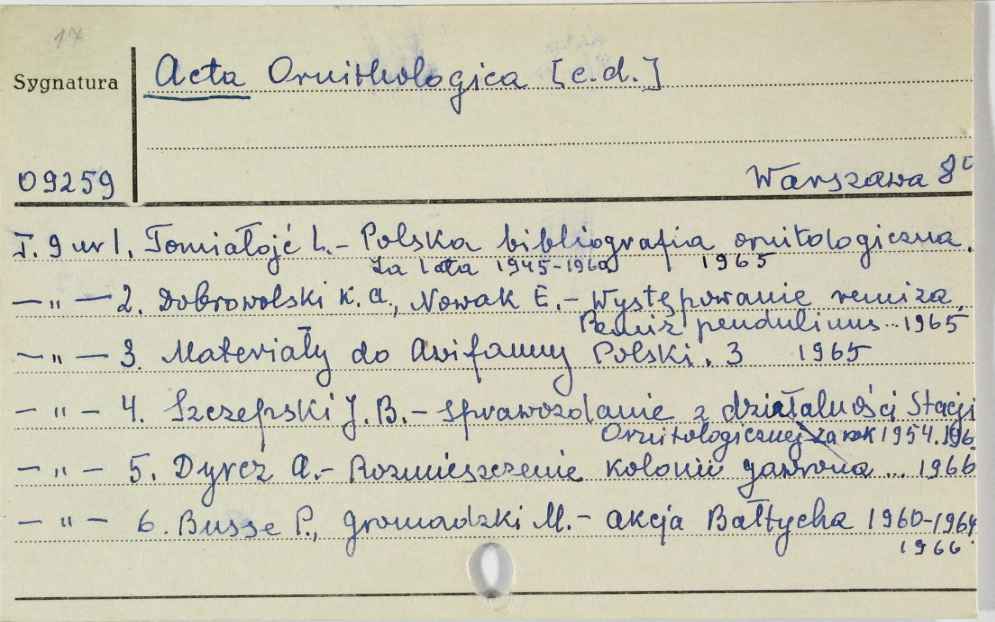 17
Sygnatura
Acta Ornithologica [c.d.]
09259
Warszawa 8°
T. 9 nr 1. Tomiałojć L. - Polska bibliografia ornitologiczna.
Za lata 1945-1960 1965
— " — 2. Dobrowolski K. A., Nowak E. - Występowanie remiza,
Remiz pendulinus... 1965
— " — 3. Materiały do Avifauny Polski. 3 1965
— " — 4. Szczepski J. B. - Sprawozdanie z działalności Stacji
Ornitologicznej za rok 1954. 196
— " — 5. Dyrcz A. - Rozmieszczenie kolonii gawrona ... 1966
— " — 6. Busse P., Gromadzki M. - Akcja Bałtycka 1960-1964
1966.